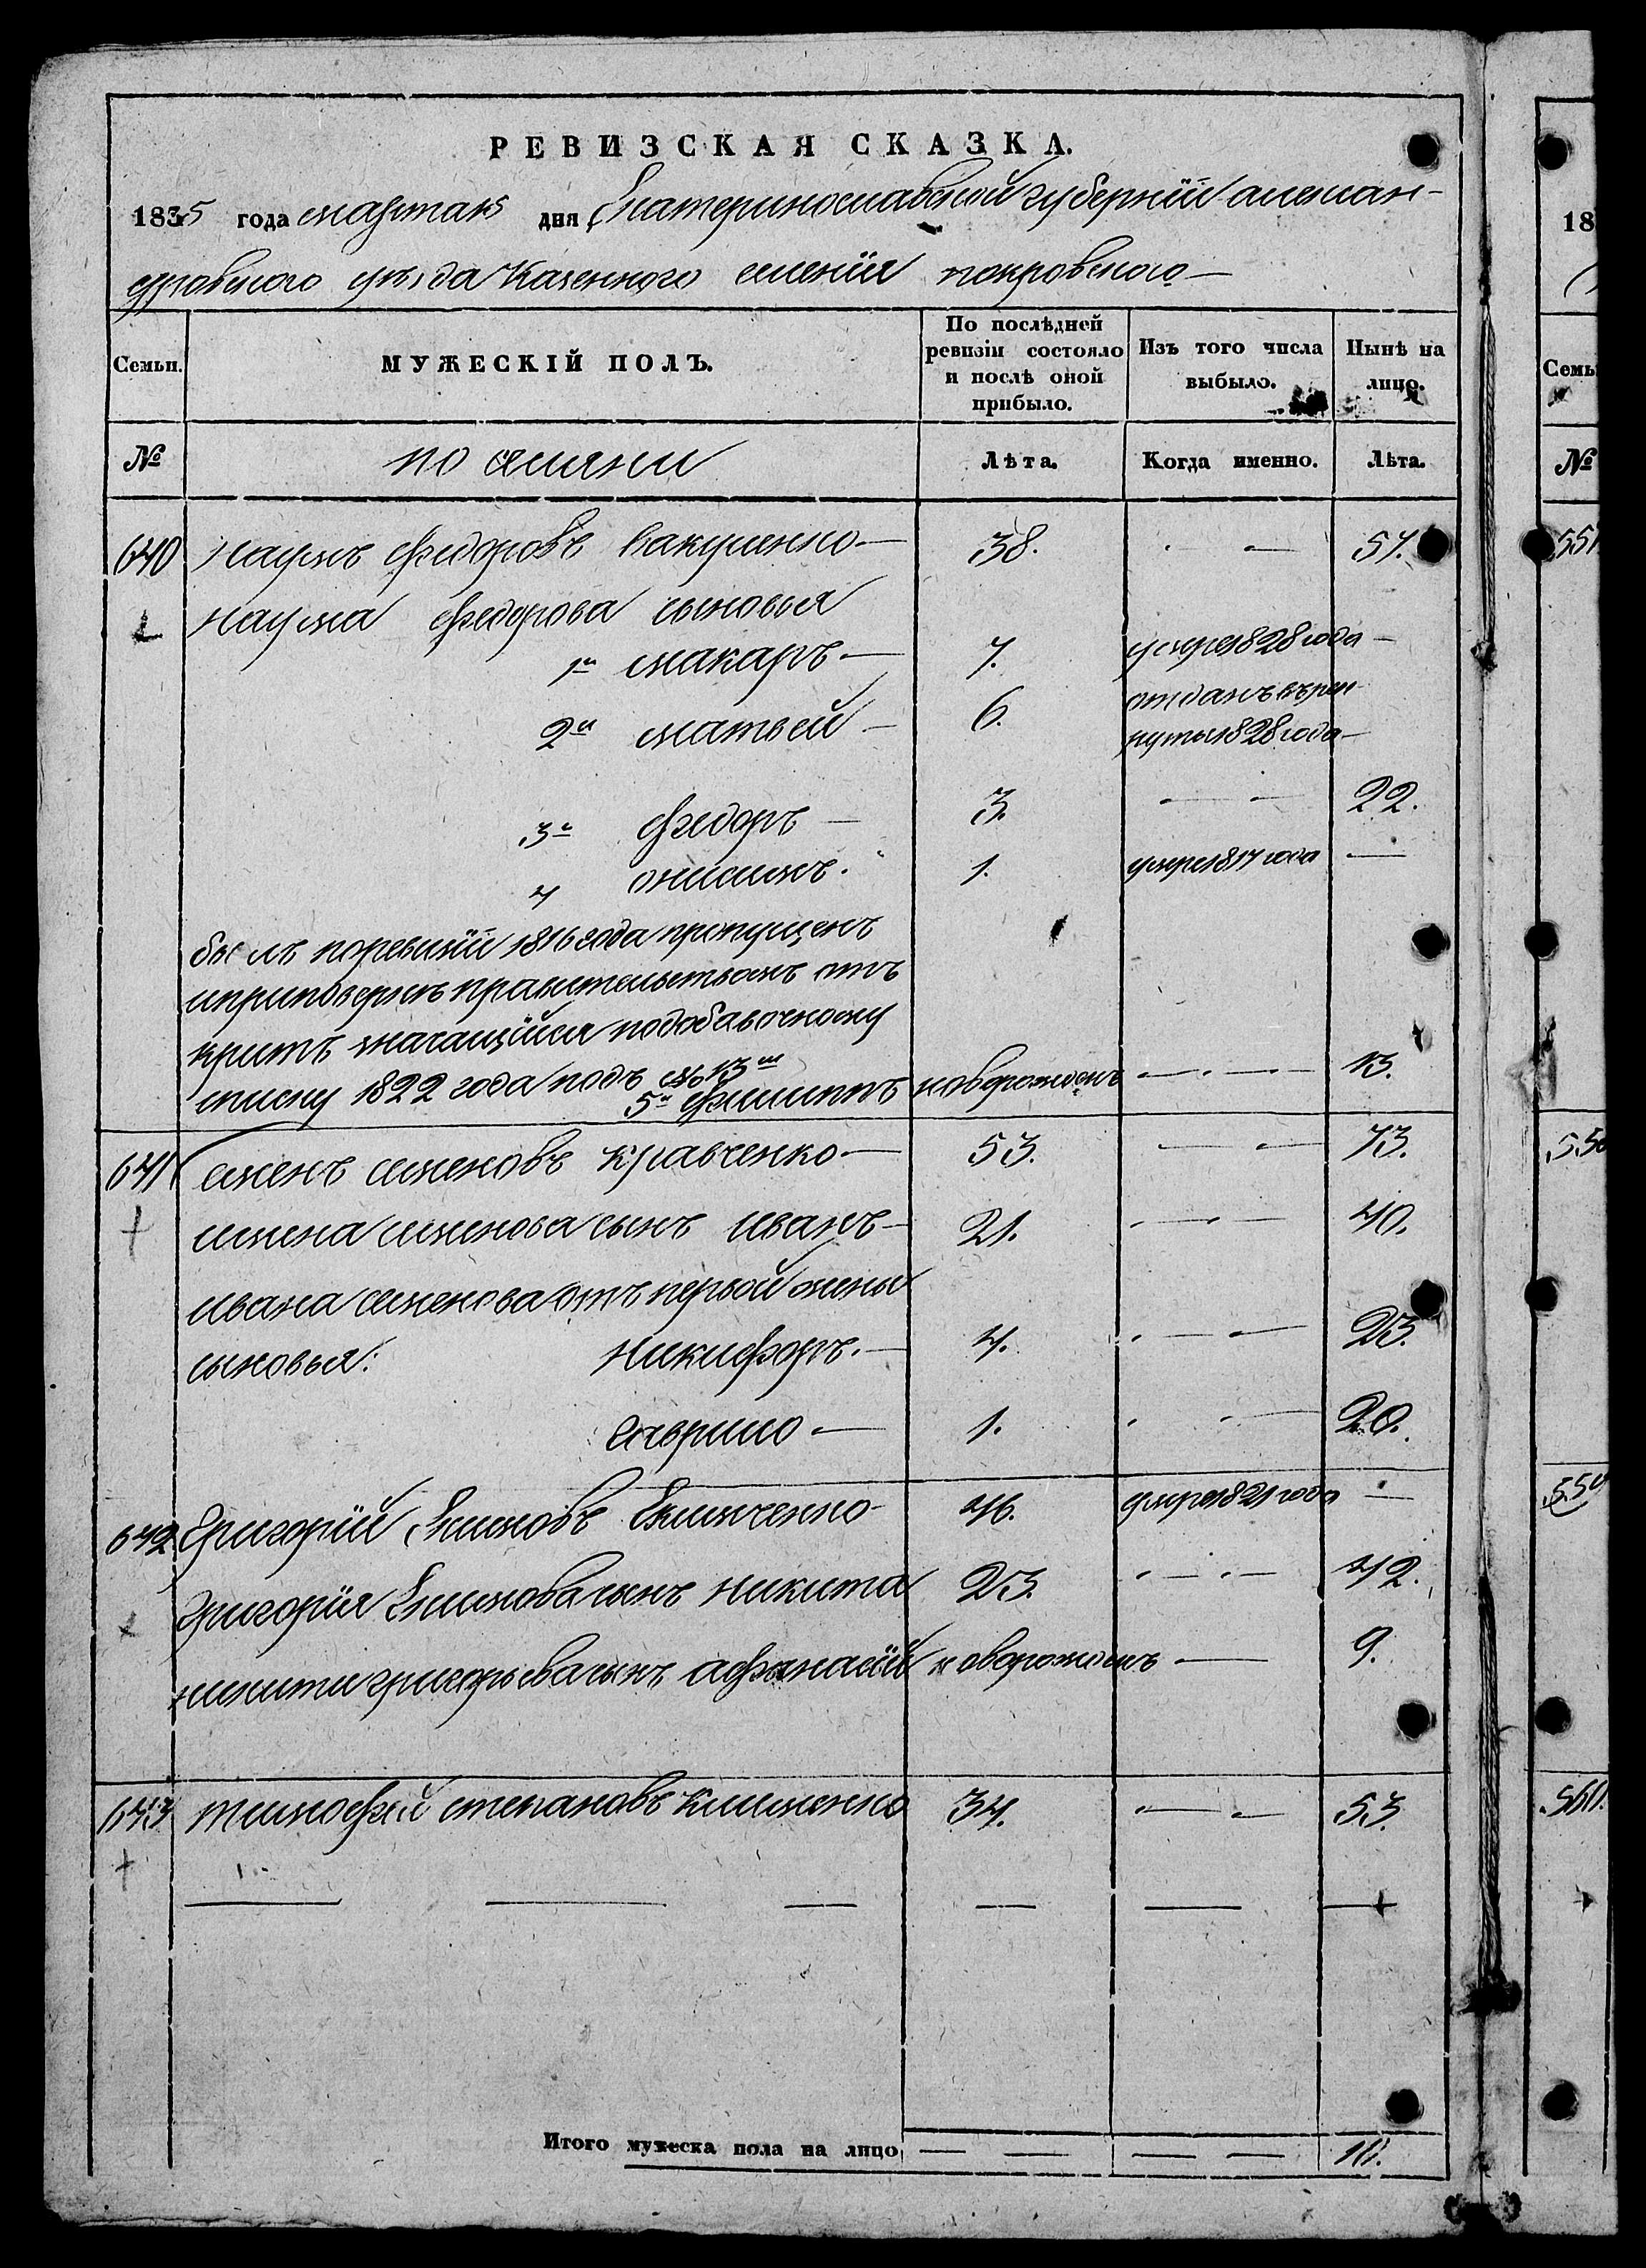 РЕВИЗСКАЯ СКАЗКА.
1835 года марта 15 дня Екатеринославской губернии алексан-
дровского уѣзда Казенного селенія покровского
Семьи. МУЖЕСКІЙ ПОЛЪ. По послѣдней ревизіи состояло и послѣ оной прибыло. Изъ того числа выбыло. Нынѣ на лицо.
№ Лѣта. Когда именно. Лѣта.
640 Наумъ федоровъ вакуленко 38. 57.
наума федорова сыновья
1й макаръ 7. умре 1828 года
2й матвей 6. отданъ въ рек
руты 1828 года
3й федоръ 3. 22.
4 онисимъ. 1. умре 1817 года
былъ по ревизіи 1816 года пропущенъ
и при поверкѣ правительствомъ отъ
крытъ значащійся по добавочному
списку 1822 года подъ № 13м
5й филиппъ новорожденъ 13.
641 семенъ семеновъ кравченко 53. 73.
семена семенова сынъ иванъ 21. 40.
ивана семенова отъ первой жены
сыновья: Никифоръ. 4. 23.
гаврило 1. 20.
642 Григорій Климовъ Климченко 46. умре 1821 года
григорія Климова сынъ никита 23. 42.
никиты григорьева сынъ афанасій новорожденъ 9.
643 тимофей степановъ клименко 34. 53.
18
Семьи
№
557.
Итого мужеска пола на лицо 10.